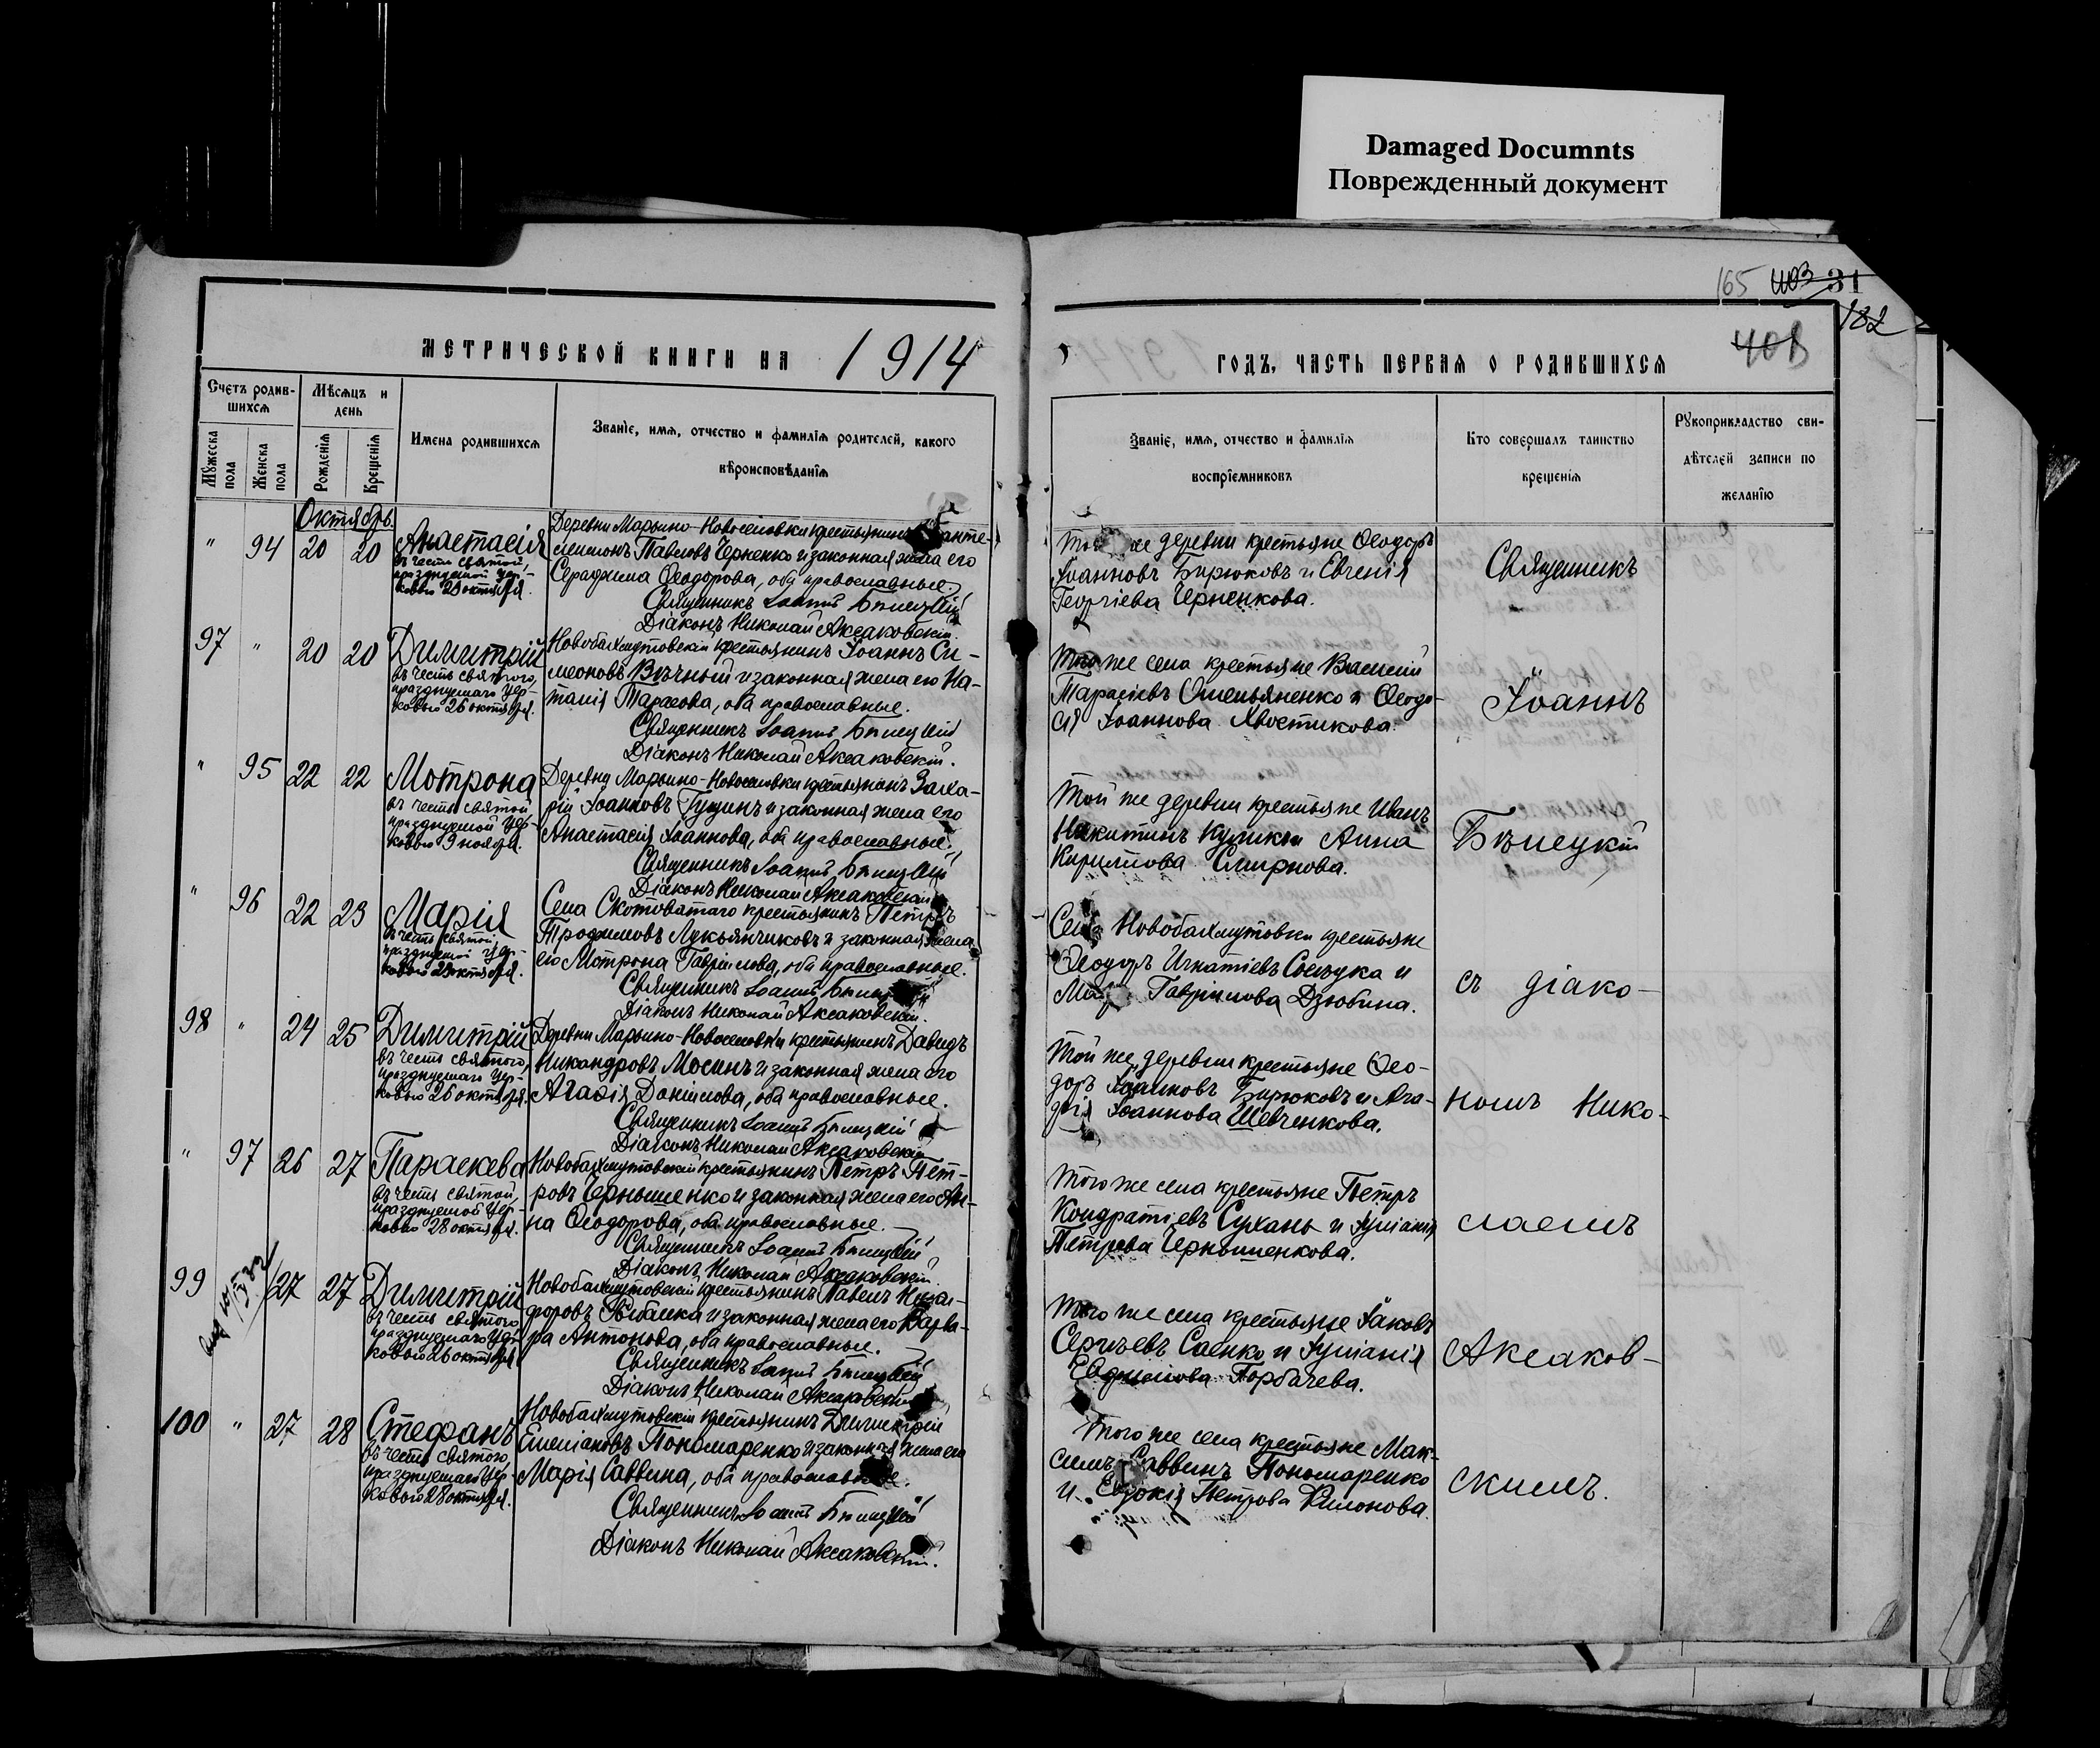 Damaged Documnts
Поврежденный документ
165 31
182
МЕТРИЧЕСКОЙ КНИГИ НА 1914
ГОДЪ, ЧАСТЬ ПЕРВАЯ О РОДИВШИХСЯ
Счетъ родив-
шихся
Мѣсяцъ и
день
Мужеска
пола
Женска
пола
Рожденія
Крещенія
Имена родившихся
Званіе, имя, отчество и фамилія родителей, какого
вѣроисповѣданія
Званіе, имя, отчество и фамилія
воспріемниковъ
Кто совершалъ таинство
крещенія
Рукоприкладство сви-
дѣтелей записи по
желанію
Октябрь.
" 94 20 20 Анастасія
въ честь святой,
празднуемой цер-
ковью 29 октября.
Деревни Марьино-Новоселовки крестьянинъ Панте-
леимонъ Павловъ Черненко и законная жена его
Серафима Ѳеодорова, оба православные.
Священникъ Іоаннъ Бѣлецкій
Діаконъ Николай Аксаковскій.
Той же деревни крестьяне Ѳеодоръ
Іоанновъ Бирюковъ и Евгенія
Георгіева Черненкова.
Священникъ
97 " 20 20 Димитрій
въ честь святого,
празднуемаго цер-
ковью 26 октября.
Новобахмутовскій крестьянинъ Іоаннъ Си-
меоновъ Вѣчный и законная жена его На-
талія Тарасова, оба православные.
Священникъ Іоаннъ Бѣлецкій
Діаконъ Николай Аксаковскій.
Того же села крестьяне Василій
Тарасіевъ Омельяненко и Ѳеодо-
сія Іоаннова Хвостикова.
Іоаннъ
" 95 22 22 Мотрона
въ честь святой
празднуемой цер-
ковью 9 ноября.
Деревни Марьино-Новоселовки крестьянинъ Заха-
рій Іоанновъ Гущинъ и законная жена его
Анастасія Іоаннова, оба православные.
Священникъ Іоаннъ Бѣлецкій
Діаконъ Николай Аксаковскій
Той же деревни крестьяне Иванъ
Никитинъ Куликъ и Анна
Кирилова Смирнова.
Бѣлецкій
" 96 22 23 Марія
въ честь святой,
празднуемой цер-
ковью 29 октября.
Села Скотоватаго крестьянинъ Петръ
Трофимовъ Лукьянчиковъ и законная жена
его Мотрона Гавріилова, оба православные.
Священникъ Іоаннъ Бѣлецкій
Діаконъ Николай Аксаковскій.
Села Новобахмутовки крестьяне
Ѳеодоръ Игнатіевъ и
Гавріилова Дзюбина.
съ діако-
98 " 24 25 Димитрій
въ честь святого,
празднуемаго цер-
ковью 26 октября.
Деревни Марьино-Новоселовки крестьянинъ Давидъ
Никандровъ Мосинъ и законная жена его
Агафія Даніилова, оба православные.
Священникъ Іоаннъ Бѣлецкій
Діаконъ Николай Аксаковскій
Той же деревни крестьяне Ѳео-
доръ Іоанновъ Бирюковъ и Ага-
фія Іоаннова Шевченкова.
номъ Нико-
" 97 26 27 Параскева
въ честь святой,
празднуемой цер-
ковью 28 октября.
Новобахмутовскій крестьянинъ Петръ Пет-
ровъ Чернышенко и законная жена его Ан-
на Ѳеодорова, оба православные.
Священникъ Іоаннъ Бѣлецкій
Діаконъ Николай Аксаковскій.
Того же села крестьяне Петръ
Кондратіевъ Сухань и Іуліанія
Петрова Чернышенкова.
лаемъ
99 27 27 Димитрій
въ честь святого
празднуемаго цер-
ковью 26 октября
Новобахмутовскій крестьянинъ Павелъ Ника-
форовъ Рыбалка и законная жена его Варва-
ра Антонова, оба православные.
Священникъ Іоаннъ Бѣлецкій
Діаконъ Николай Аксаковскій
Того же села крестьяне Іаковъ
Сергѣевъ Саенко и Іуліанія
Евфимова Горбачева.
Аксаков-
100 " 27 28 Стефанъ
въ честь святого,
празднуемаго цер-
ковью 28 октября.
Новобахмутовскій крестьянинъ Димитрій
Емеліановъ Пономаренко и законная жена его
Марія Саввина, оба православные.
Священникъ Іоаннъ Бѣлецкій
Діаконъ Николай Аксаковскій.
Того же села крестьяне Мак-
симъ Саввинъ Пономаренко
и Евдокія Петрова Филонова.
скимъ.